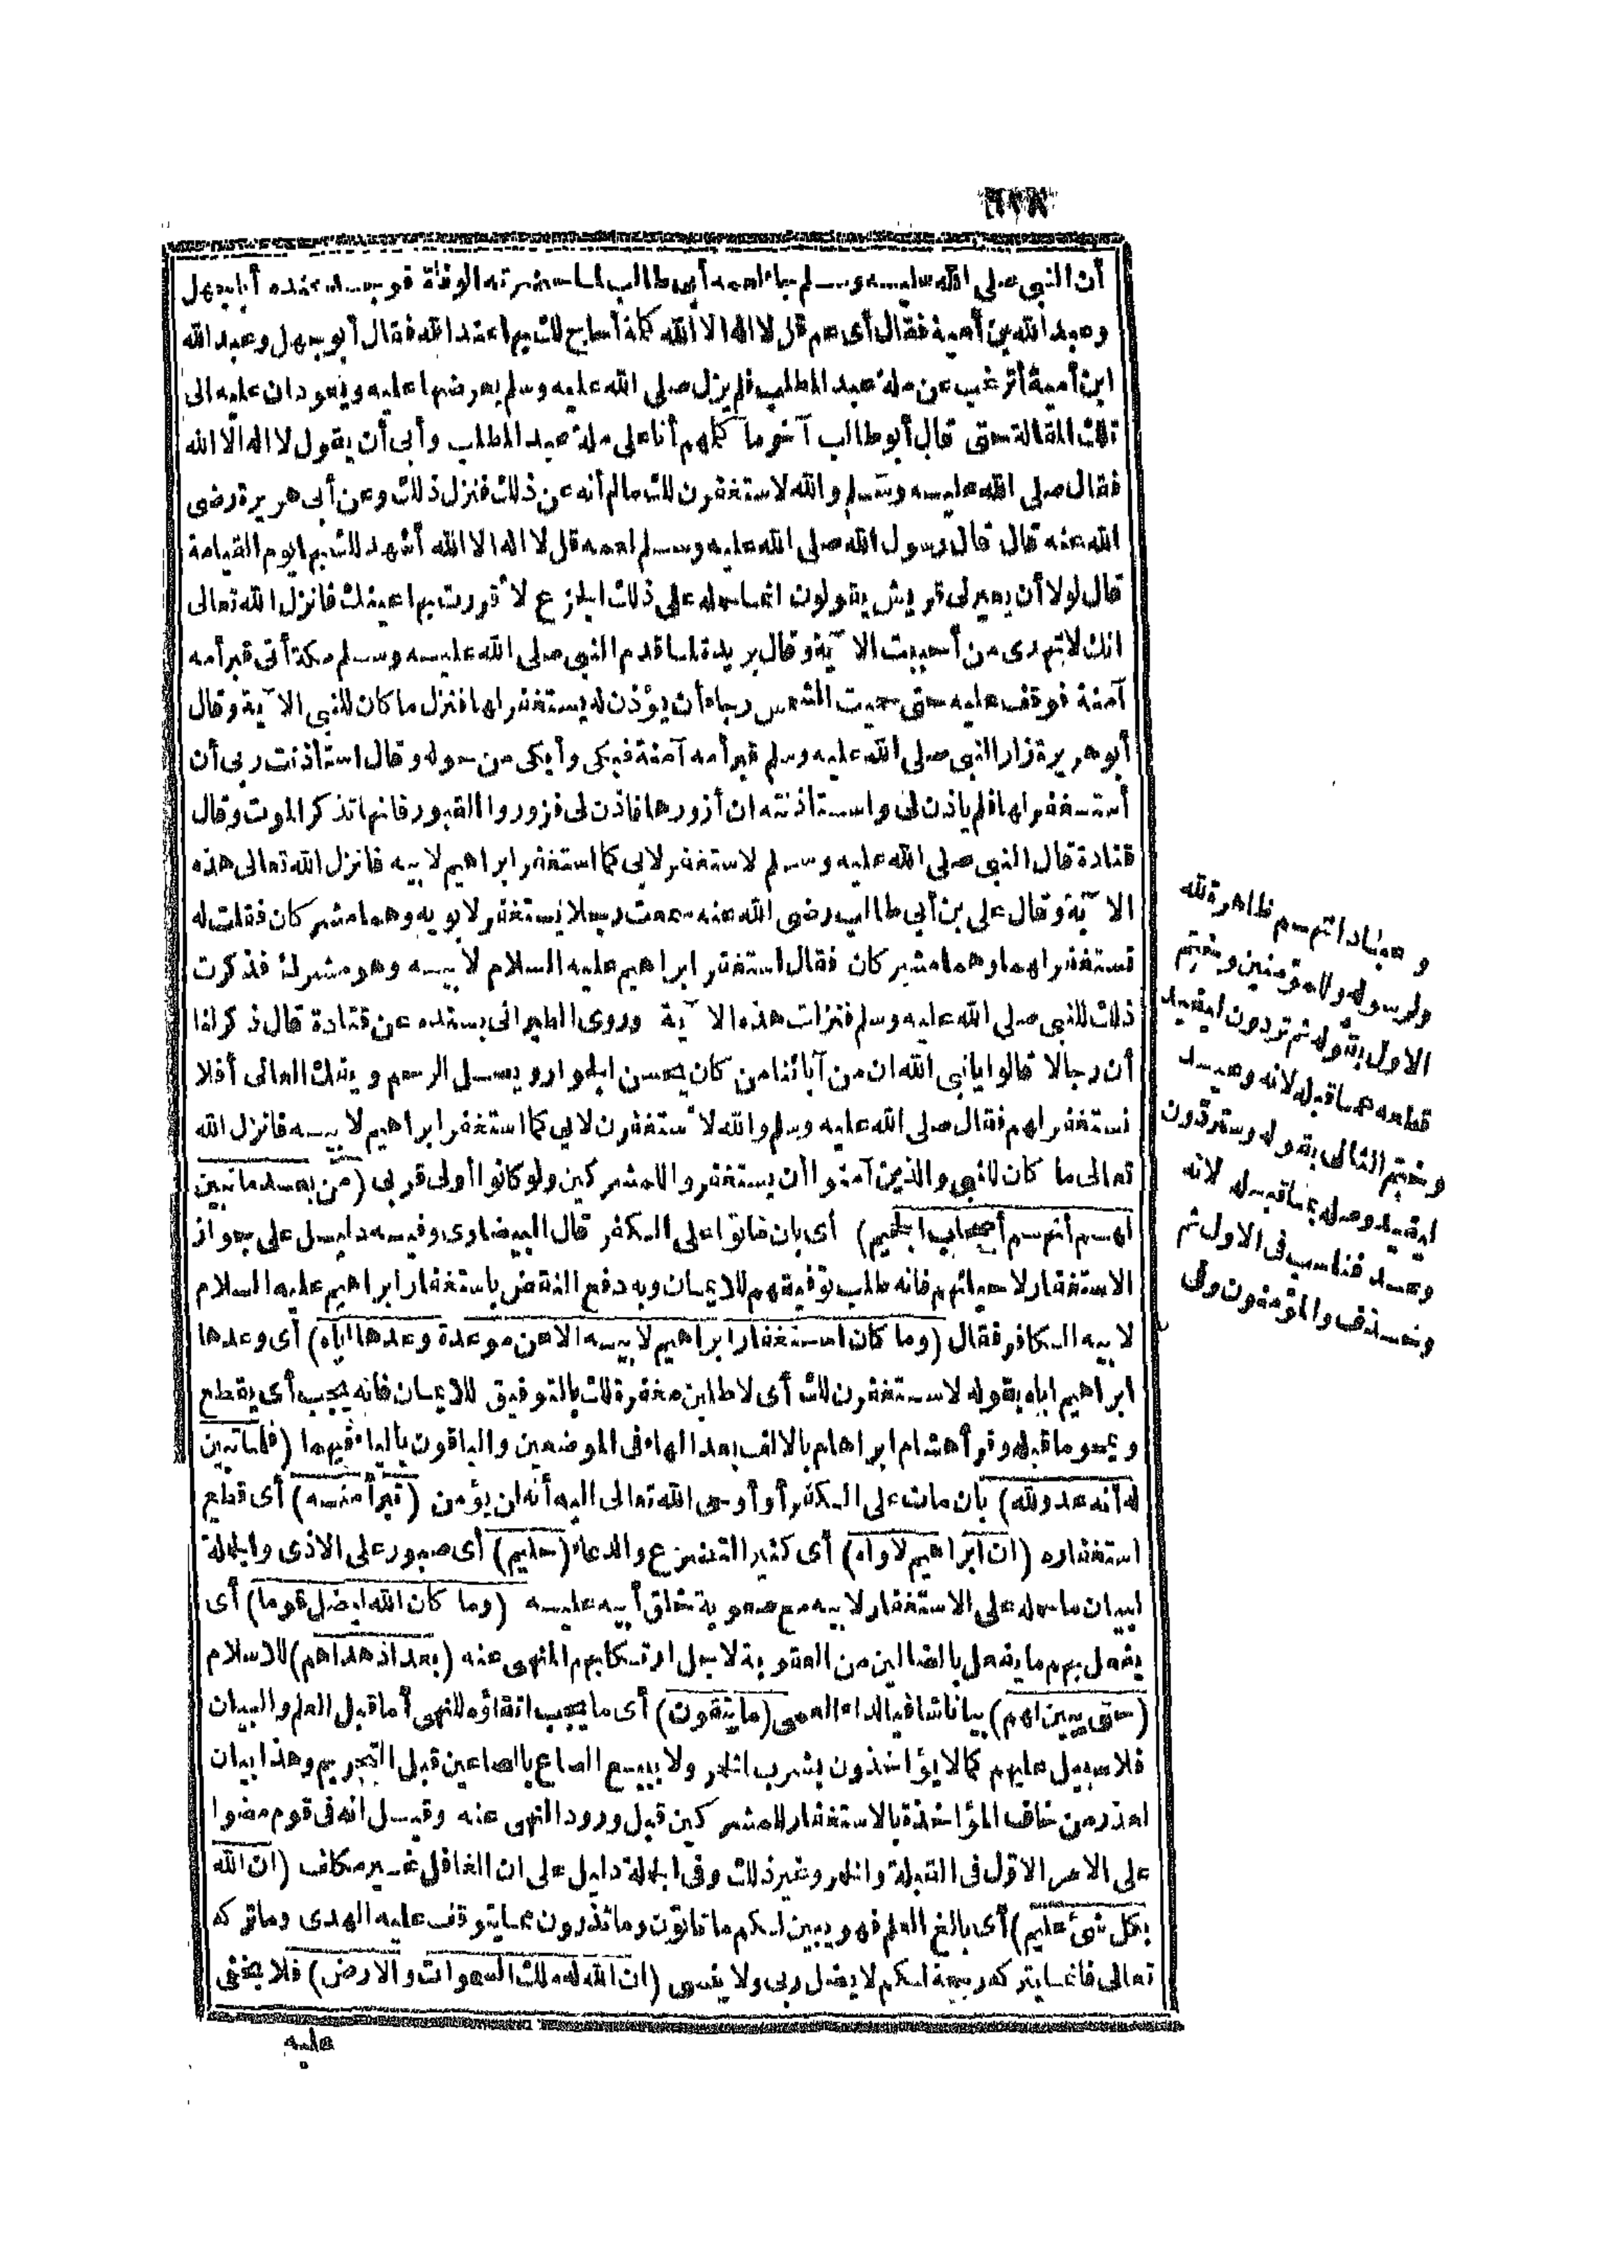 أن النبي صلى الله عليه وسلم جاء لعمه أبي طالب لما حضرته الوفاة فوجد عنده أبا جهل
وعبد الله بن أمية فقال أى عم قل لا اله الا الله كلة أحاج لك بها عند الله فقال أبو جهل وعبد الله
ابن أمية أترغب عن ملة عبد المطلب فلم يزل صلى الله عليه وسلم يعرضها عليه ويعودان عليه الى
تلك المقالة حتى قال أبو طالب آخر ما كلهم أنا على ملة عبد المطلب وأبى أن يقول لا اله الا الله
فقال صلى الله عليه وسلم والله لاستغفرن لك مالم أنه عن ذلك فنزل ذلك وعن أبى هريرة رضى
الله عنه قال قال رسول الله صلى الله عليه وسلم لعمه قل لا اله الا الله أشهد لك بها يوم القيامة
قال لولا أن يعيرنى قريش يقولون انما حمله على ذلك الجزع لا ٔقررت بها عينك فانزل الله تعالى
انك لا تهدى من أحببت الا ٓية وقال بريدة لما قدم النبي صلى الله عليه وسلم مكة أتى قبر أمه
آمنة فوقف عليه حتى حميت الشمس رجاء أن يؤذن له يستغفر لها فنزل ما كان للنبي الا ٓية وقال
أبو هريرة زار النبي صلى الله عليه وسلم قبر أمه آمنة فبكى وأبكى من حوله وقال استاذنت ربى أن
أستغفر لها فلم ياذن لى واستاذنته ان أزورها فاذن لى فزوروا القبور فانها تذكر الموت وقال
قتادة قال النبي صلى الله عليه وسلم لاستغفر لابى كما استغفر ابراهيم لابيه فانزل الله تعالى هذه
الا ٓية وقال على بن أبي طالب رضى الله عنه سمعت رجلا يستغفر لابويه وهما مشركان فقلت له
تستغفر لهما وهما مشركان فقال استغفر ابراهيم عليه السلام لابيه وهو مشرك فذكرت
ذلك للنبي صلى الله عليه وسلم فنزلت هذه الا ٓية وروى الطبرانى بسنده عن قتادة قال ذكر لنا
أن رجالا قالوا يانبى الله ان من آبائنا من كان يحسن الجوار ويصل الرحم ويفك العانى أفلا
نستغفر لهم فقال صلى الله عليه وسلم والله لا ٔستغفرن لابى كما استغفر ابراهيم لابيه فانزل الله
تعالى ما كان للنبي والذين آمنوا أن يستغفروا للمشركين ولو كانوا أولى قربى (من بعد ما تبين
لهم أنهم أصحاب الجحيم) أى بان ماتوا على الكفر قال البيضاوى وفيه دليل على جواز
الاستغفار لاحيائهم فانه طلب توفيقهم للايمان وبه دفع النقض باستغفار ابراهيم عليه السلام
لابيه الكافر فقال (وما كان استغفار ابراهيم لابيه الا عن موعدة وعدها اياه) أى وعدها
ابراهيم اياه بقوله لاستغفرن لك أى لاطلبن مغفرة لك بالتوفيق للايمان فانه يجب أى يقطع
ويمحو ما قبله وقرأ هشام ابراهام بالالف بعد الهاء فى الموضعين والباقون بالياء فيهما (فلما تبين
له أنه عدو لله) بان مات على الكفر أو أوحى الله تعالى اليه أنه لن يؤمن (تبرأ منه) أى قطع
استغفاره (ان ابراهيم لاواه) أى كثير التضرع والدعاء (حليم) أى صبور على الاذى والجملة
لبيان ما حمله على الاستغفار لابيه مع صعوبة خلق أبيه عليه (وما كان الله ليضل قوما) أى
يفعل بهم ما يفعل بالضالين من العقوبة لاجل ارتكابهم المنهى عنه (بعد اذ هداهم) للاسلام
(حتى يبين لهم) بيانا شافيا لداء العمى (ما يتقون) أى ما يجب اتقاؤه للنهى أما قبل العلم والبيان
فلا سبيل عليهم كما لا يؤاخذون بشرب الخمر ولا ببيع الصاع بالصاعين قبل التحريم وهذا بيان
لعذر من خاف المؤاخذة بالاستغفار للمشركين قبل ورود النهى عنه وقيل انه فى قوم مضوا
على الامر الاوّل فى القبلة والخمر وغير ذلك وفى الجملة دليل على ان الغافل غير مكلف (ان الله
بكل شئ عليم) أى بالغ العلم فهو يبين لكم ما تاتون وما تذرون مما يتوقف عليه الهدى وما تركه
تعالى فانما يتركه رحمة لكم لا يضل ربى ولا ينسى (ان الله له ملك السموات والارض) فلا يخفى
عليه
وعباداتهم ظاهرة لله
ولرسوله وللمؤمنين وختم
الاول بقوله ثم تردون ليفيد
قطعه عما قبله لانه وعيد
وختم الثانى بقوله وستردّون
ليفيد وصله بما قبله لانه
وعد فناسب فى الاول ثم
وحذف والمؤمنون وفى